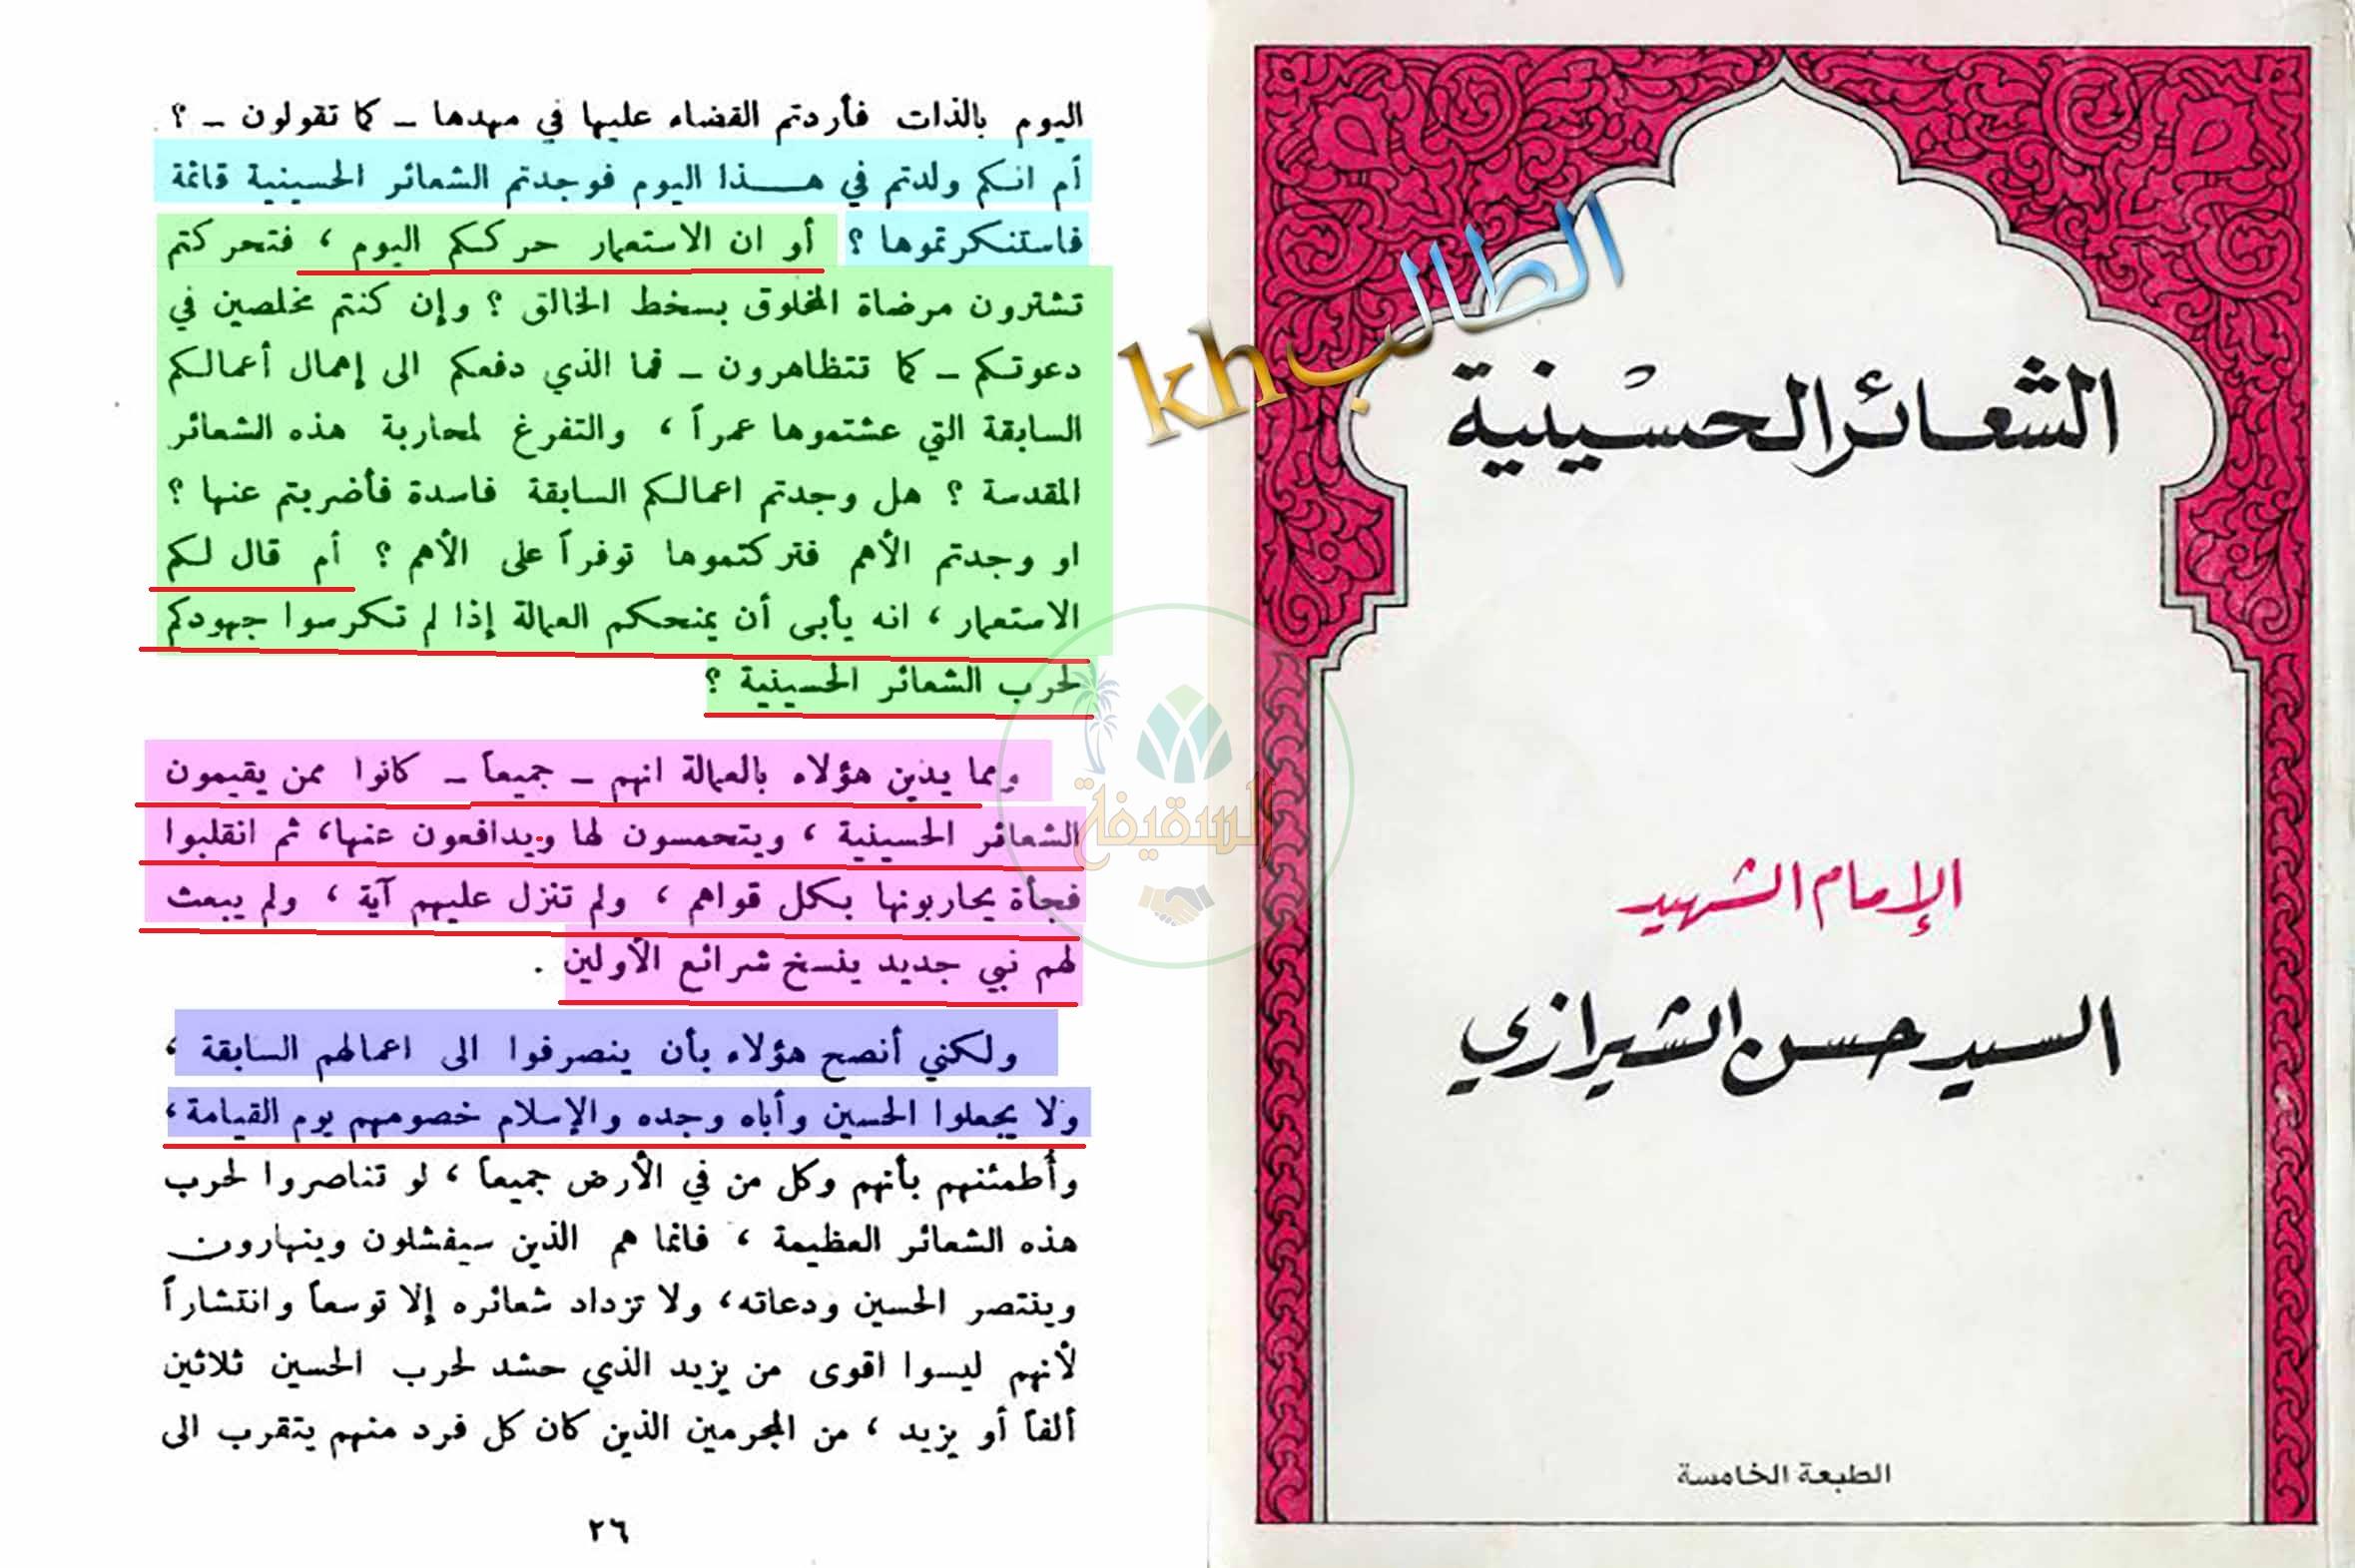 الشعائر الحسينية
الإمام الشهيد
السيد حسن الشيرازي
الطبعة الخامسة
الطالب kh
السقيفة
اليوم بالذات فأردتم القضاء عليها في مهدها – كما تقولون – ؟
أم انكم ولدتم في هـــذا اليوم فوجدتم الشعائر الحسينية قائمة
فاستنكرتموها ؟ أو ان الاستعمار حركـكم اليوم ، فتحركتم
تشترون مرضاة المخلوق بسخط الخالق ؟ وإن كنتم مخلصين في
دعوتكم – كما تتظاهرون – فما الذي دفعكم الى إهمال أعمالكم
السابقة التي عشتموها عمراً ، والتفرغ لمحاربة هذه الشعائر
المقدسة ؟ هل وجدتم اعمالكم السابقة فاسدة فأضربتم عنها ؟
او وجدتم الأهم فتركتموها توفراً على الأهم ؟ أم قال لكم
الاستعمار ، انه يأبى أن يمنحكم العمالة إذا لم تكرسوا جهودكم
لحرب الشعائر الحسينية ؟
ومما يدين هؤلاء بالعمالة انهم – جميعاً – كانوا ممن يقيمون
الشعائر الحسينية ، ويتحمسون لها ويدافعون عنها، ثم انقلبوا
فجأة يحاربونها بكل قواهم ، ولم تنزل عليهم آية ، ولم يبعث
لهم نبي جديد ينسخ شرائع الأولين .
ولكني أنصح هؤلاء بأن ينصرفوا الى اعمالهم السابقة ،
ولا يجعلوا الحسين وأباه وجده والإسلام خصومهم يوم القيامة ،
وأطمئنهم بأنهم وكل من في الأرض جميعاً ، لو تناصروا لحرب
هذه الشعائر العظيمة ، فانما هم الذين سيفشلون وينهارون
وينتصر الحسين ودعاته، ولا تزداد شعائره إلا توسعاً وانتشاراً
لأنهم ليسوا اقوى من يزيد الذي حشد لحرب الحسين ثلاثين
ألفاً أو يزيد ، من المجرمين الذين كان كل فرد منهم يتقرب الى
٢٦